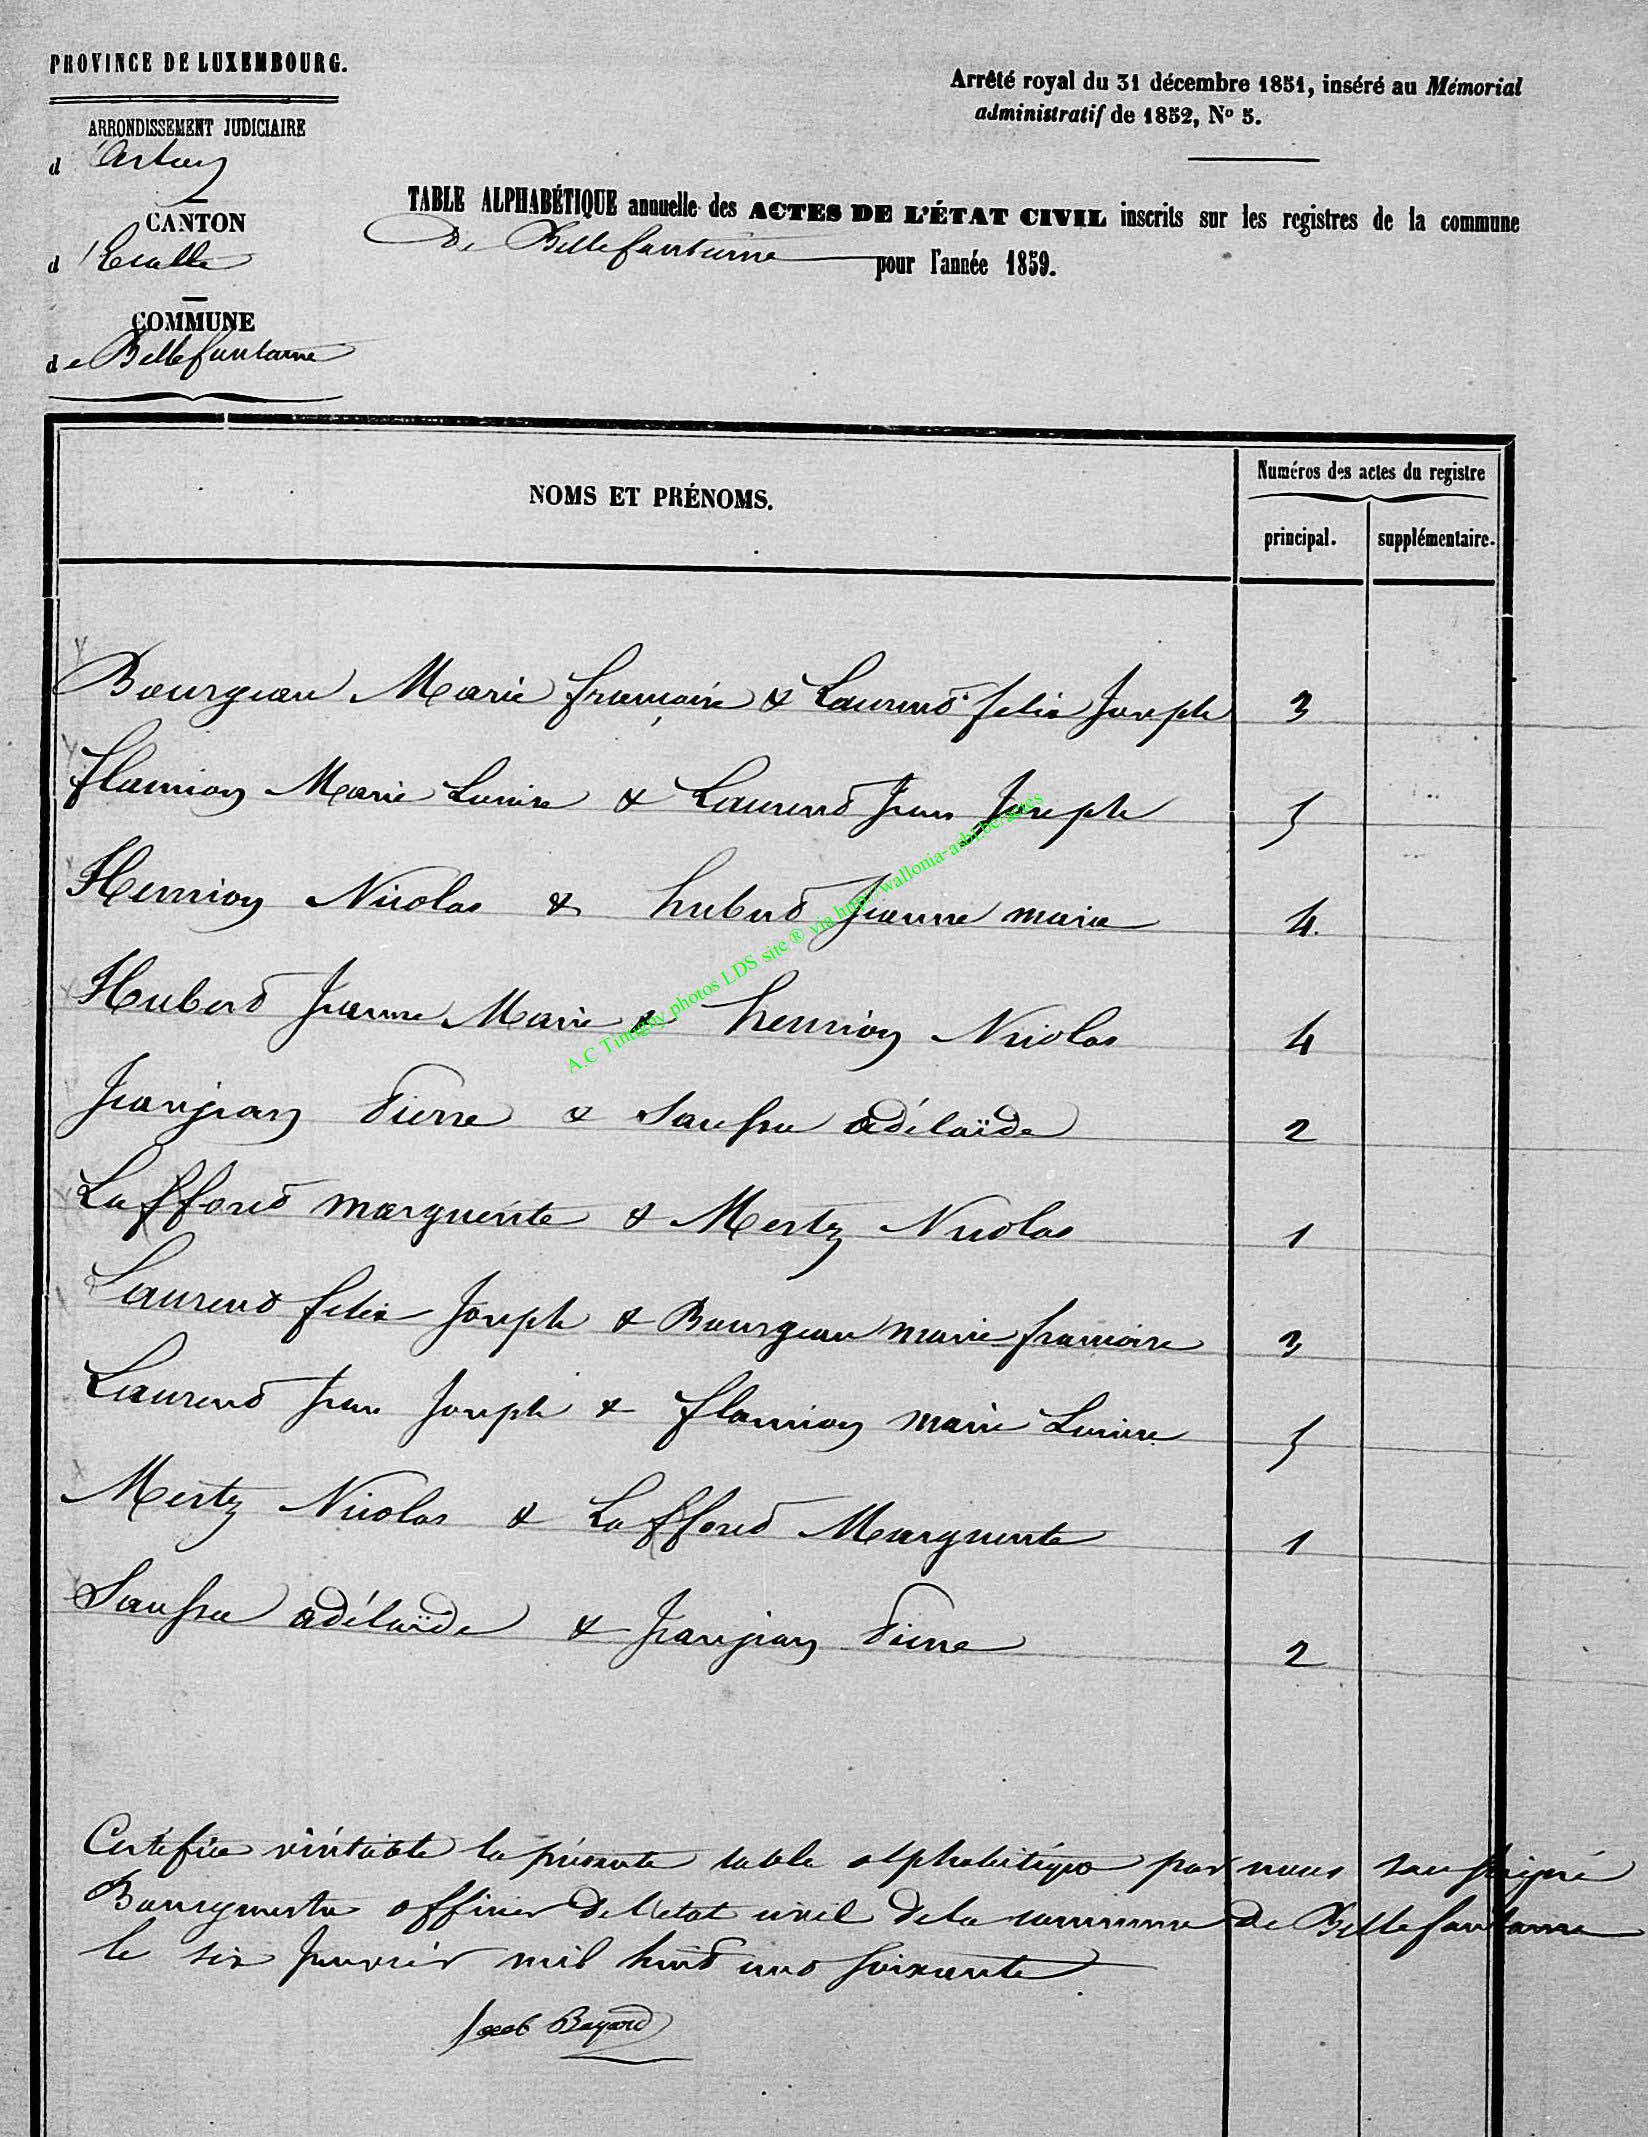 PROVINCE DE LUXEMBOURG.
Arrêté royal du 31 décembre 1851, inséré au Mémorial
administratif de 1852, No 5.
ARRONDISSEMENT JUDICIAIRE
d'Arlon
CANTON
d'Etalle
COMMUNE
de Bellefontaine
TABLE ALPHABÉTIQUE annuelle des ACTES DE L'ÉTAT CIVIL inscrits sur les registres de la commune
de Bellefontaine pour l'année 1859.
NOMS ET PRÉNOMS.
Numéros des actes du registre
principal. supplémentaire.
Bourgeau Marie françoise & Laurend felix Joseph 3
flamion Marie Louise & Laurend Jean Joseph 5
Henrion Nicolas & huberd Jeanne marie 4
Huberd Jeanne Marie & henrion Nicolas 4
Jeanjean Pierre & Saussu adélaïde 2
Laffored marguerite & Mertz Nicolas 1
Laurend felix Joseph & Bourgeau marie francoise 3
Laurend Jean Joseph & flamion marie Louise 5
Mertz Nicolas & Laffored Marguerite 1
Saussu adélaïde & Jeanjean Pierre 2
Certifiée véritable la présente table alphabétique par nous soussigné
Bourgmestre officier de l'etat civil de la commune de Bellefontaine
le six Janvier mil huit cent soixante
Jacob Bayard
A.C Tintigny photos LDS site ® via http://wallonia-asbl.be/actes